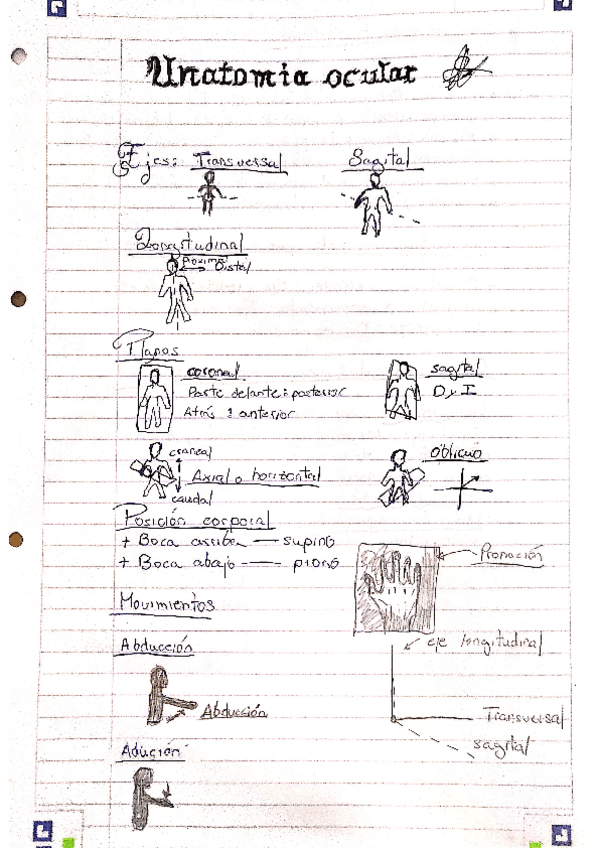 Anatomia ocular
Ejes: Transversal Sagital
Longitudinal
Proximal
Distal
Planos
coronal
Parte delante: posterior
Atrás : anterior
sagital
D y I
craneal
Axial o horizontal
caudal
oblicuo
Posición corporal
+ Boca arriba — supino
+ Boca abajo — prono
Pronación
Movimientos
eje longitudinal
Transversal
sagital
Abducción
Abducción
Adución